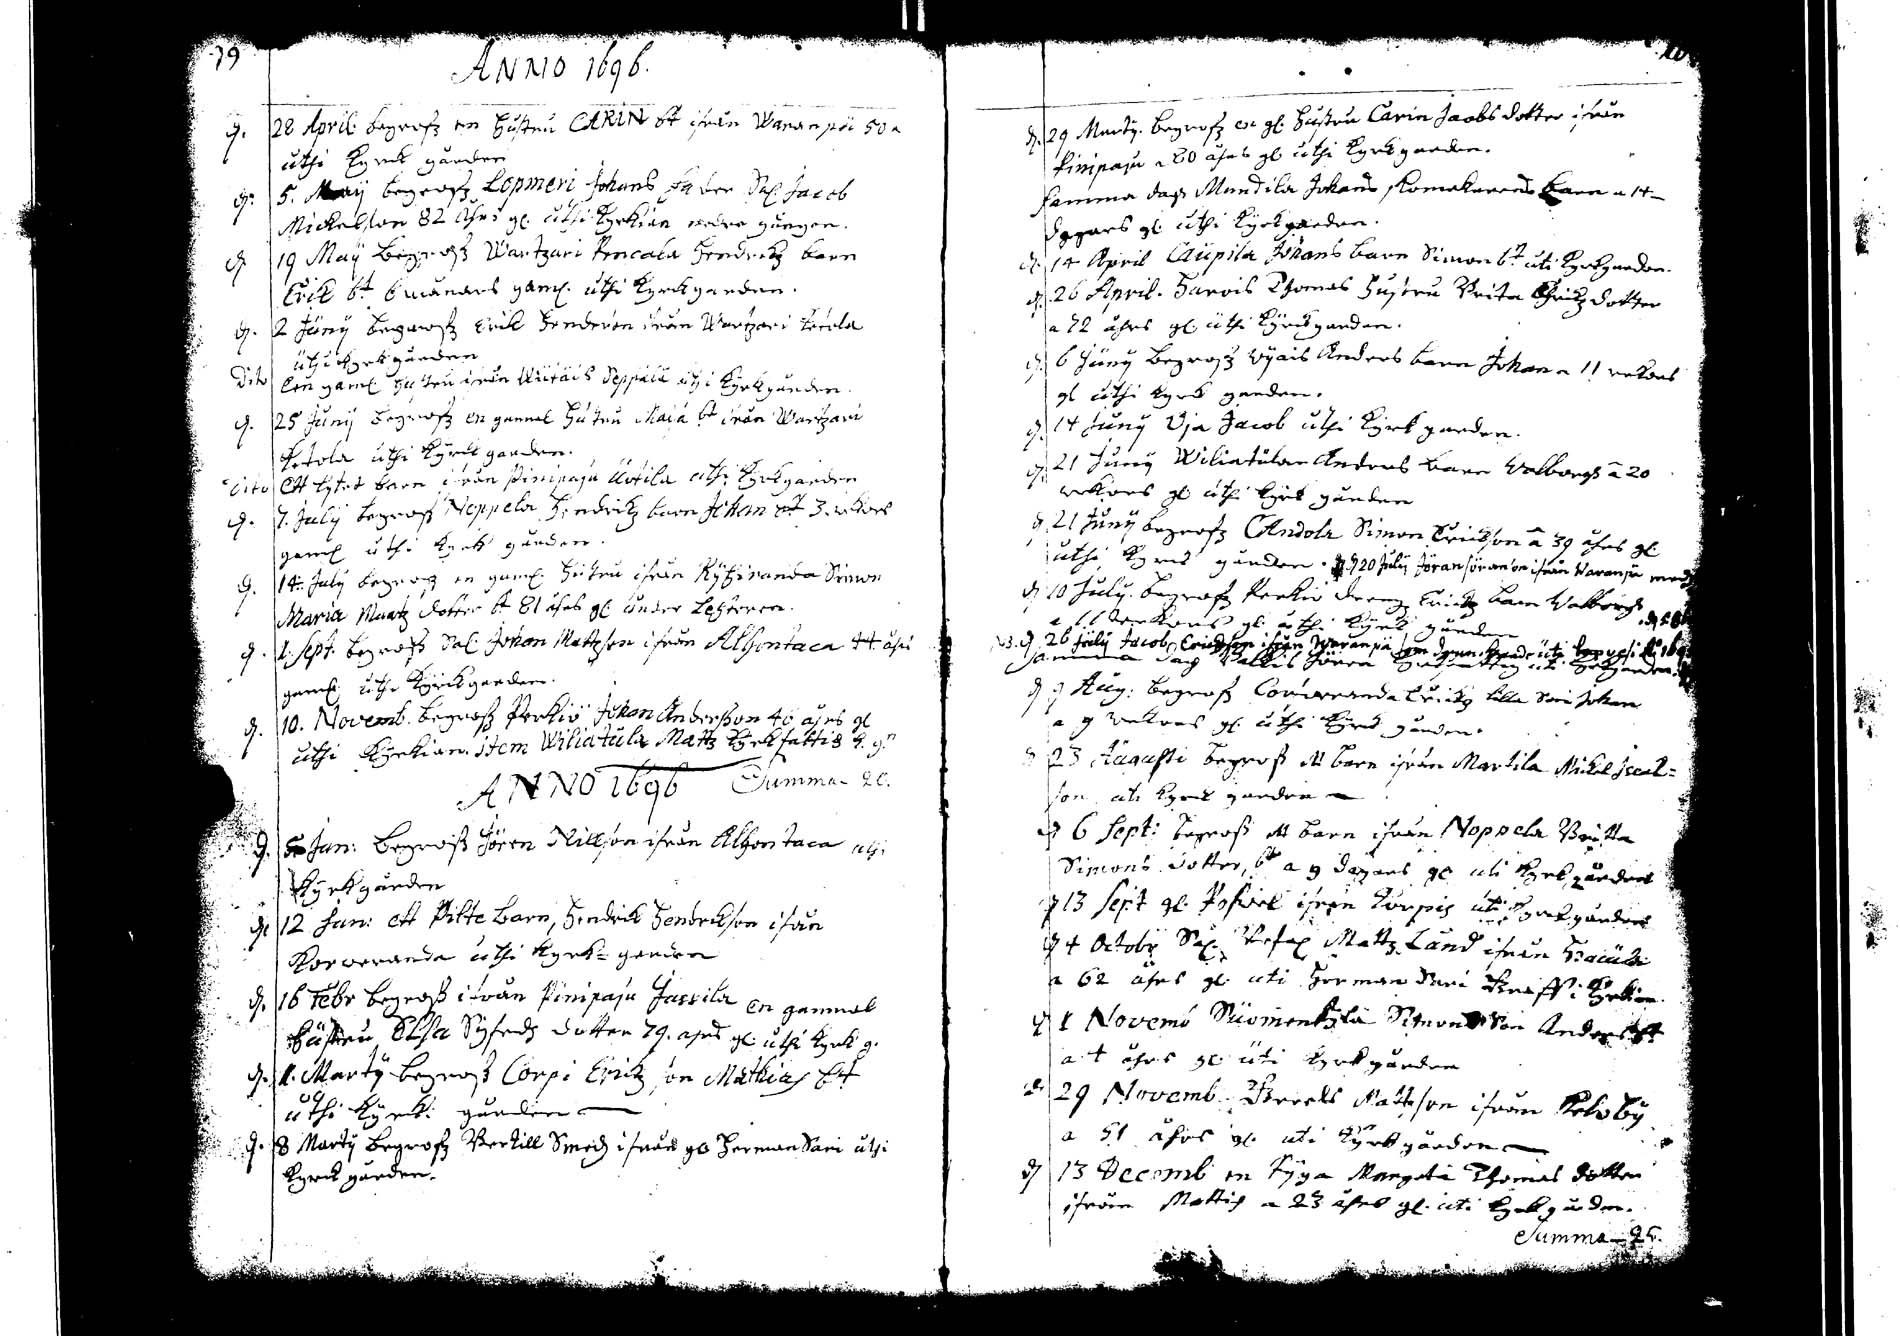 19
ANNO 1696.
d. 28 April begrofz en Hustru CARIN bt ifrån Waranpä 50 a
uthi Kyrck gården
d. 5. May begrofz Lopmeri Johans fader Sal Jacob
Mickelson 82 åhrs gl. uthi Kyrkian nedre gången.
d. 19 May Begrofz Wartzari Pencala Hendrickz barn
Erik bt 6 månars gaml. uthi Kyrkgården.
d. 2 Juny begrofz Erik Henderson ifrån Wartzari Ketola
uthi Kyrkgården
Dito Een gaml Hustru ifrån Seppälä uthi Kyrkgården.
d. 25 Juny begrofz en gammal Hustru Maja bt ifrån Wartzari
Ketola uthi Kyrck gården.
Dito Ett lytet barn ifrån Pinipaju Uotila uthi Kyrkgården
d. 7. July begrofz Noppela Hendrickz barn Johan bt 3. wekors
gaml uthi Kyrck gården.
d. 14. July begrofz en gaml. Hustru ifrån Simon
Maria Martz dotter bt 81 åhrs gl. under
d. 1. Sept. begrofz Sal Johan Mattzson ifrån Alhontaca 44 åhrs
gaml. uthi Kyrckgården.
d. 10. Novemb. begrofz Perkiö Johan Andersson 46 åhrs gl
uthi Kyrckian. item Wiliatula Mattz
Summa 20.
ANNO 1696
d. 5 Jan: Begrofz Jören Nillson ifrån Alhontaca uthi
Kyrkgården
d. 12 Jan: ett Pilte barn, Hendrik Hendrickson ifrån
Korweranda uthi Kyrk=gården
d. 16 Febr begrofz ifrån Pinipaju Jassila en gammal
Hustru Elsa Sijfredz dotter 79. åhrs gl. uthi Kyrk g.
d. 1. Marty begrofz Corpi Erickz son Mathias bt
uthi Kyrck: gården
d. 8 Marty begrofz Bertill Smed ifrån Herman Sari uthi
Kyrck gården.
d. 29 Marty. begrofz en gl. Hustru Carin Jacobs dotter ifrån
Pinipaju a 80 åhrs gl. uthi Kyrkgården.
Samma dag Mundila Johans Skomakarens barn a 14
dagars gl. uthi Kyrkgården.
d. 14 April Caupila Johans barn Simon bt uti Kyrkgården.
d. 26 April. Harvis Thomas Hustru Brita Erickz dotter
a 72 åhrs gl. uthi Kyrckgården.
d. 6 Juny begrofz Anders barn Johan a 11 wekors
gl uthi Kyrk gården.
d. 14 Juny Oja Jacob uthi Kyrkgården.
d. 21 Juny Wiliatulan Anders barn Walborg a 20
wekors gl. uthi Kyrk gården
d. 21 Juny begrofz Andola Simon Erickson a 39 åhrs gl.
uthi Kyrck gården. d. 20 July Jöran Jöranson ifrån Waranpä
d. 10 July. begrofz Perkiö dreng Erickz barn Walborg
a 11 weckors gl. uthi Kyrk gården
d. 26 July Jacob Erickson ifrån Waranpä
Samma dag Jören uti Kyrkgården.
d. 9 Aug: begrofz Corweranda Erickz lilla Son Johan
a 9 wekors gl. uthi Kyrk gården.
d 23 Augusti begrofz ett barn ifrån Martila Mickel Isaak=
son uti Kyrck gården
d 6 Sept: begrofz ett barn ifrån Noppela Britta
Simons dotter, bt a 9 dagars gl uti Kyrkgården
d 13 Sept gl. ifrån Corpis uti Kyrkgården
d 4 Octobr Sal. Mattz Lund ifrån
a 62 åhrs gl. uti Herman Sari Graff i Kyrkian.
d 1 Novemb Suomenkylä Simons Son Anders bt
a 4 åhrs gl. uti Kyrkgården
d 29 Novemb. Mattzson ifrån
a 51 åhrs gl. uti Kyrkgården
d 13 Decemb en Pyga Margeta Thomas dotter
ifrån Mattis a 23 åhrs gl. uti Kyrkgården.
Summa 25.